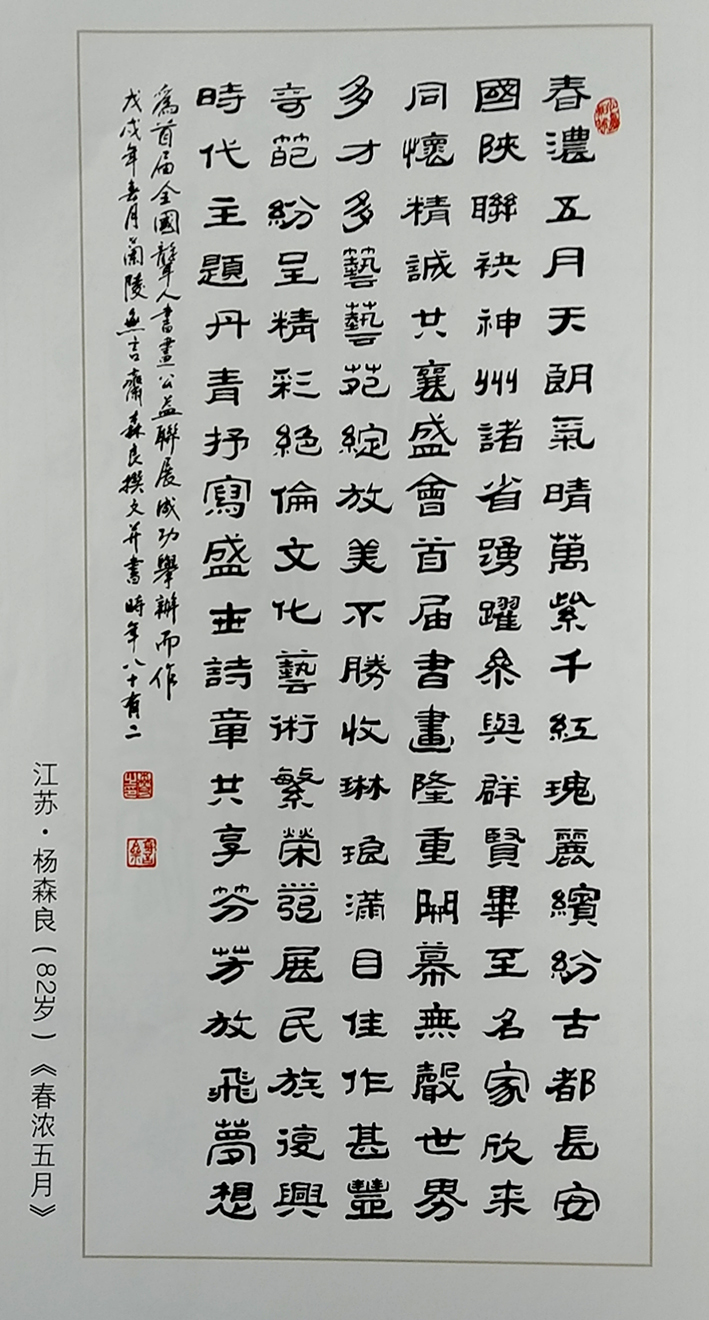 春濃五月天朗氣晴萬紫千紅瑰麗繽紛古都長安
國陝聯袂神州諸省踴躍參與群賢畢至名家欣來
同懷精誠共襄盛會首届書畫隆重開幕無聲世界
多才多藝藝苑綻放美不勝收琳琅滿目佳作甚豐
奇葩紛呈精彩絕倫文化藝術繁榮發展民族復興
時代主題丹青抒寫盛世詩章共享芬芳放飛夢想
爲首届全國聾人書畫公益聯展成功舉辦而作
戊戌年春月蘭陵吉齋森良撰文并書時年八十有二
江苏·杨森良（82岁）《春浓五月》